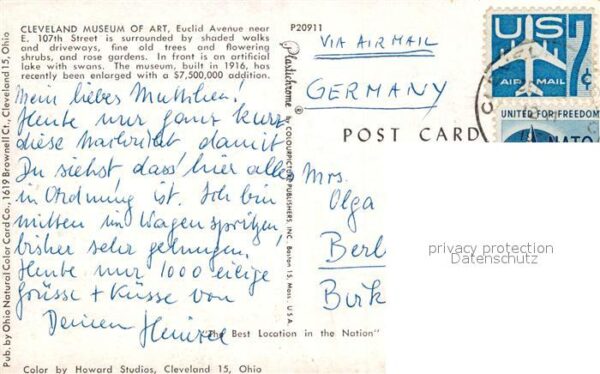 CLEVELAND MUSEUM OF ART, Euclid Avenue near
E. 107th Street is surrounded by shaded walks
and driveways, fine old trees and flowering
shrubs, and rose gardens. In front is an artificial
lake with swans. The museum, built in 1916, has
recently been enlarged with a $7,500,000 addition.
Mein liebes Muttilein!
Heute nur ganz kurz
diese Nachricht damit
Du siehst dass hier alles
in Ordnung ist. Ich bin
mitten im Wagen spritzen,
bisher sehr gelungen!
Heute nur 1000 eilige
Grüsse + Küsse von
Deinem
Pub. by Ohio Natural Color Card Co., 1619 Brownell Ct., Cleveland 15, Ohio
Color by Howard Studios, Cleveland 15, Ohio
Plastichrome ® by COLOURPICTURE PUBLISHERS, INC. Boston 15, Mass., U.S.A.
"The Best Location in the Nation"
P20911
VIA AIR MAIL
GERMANY
POST CARD
Mrs.
Olga
Berl
Birk
US 7¢
AIR MAIL
UNITED FOR FREEDOM
NATO
privacy protection
Datenschutz